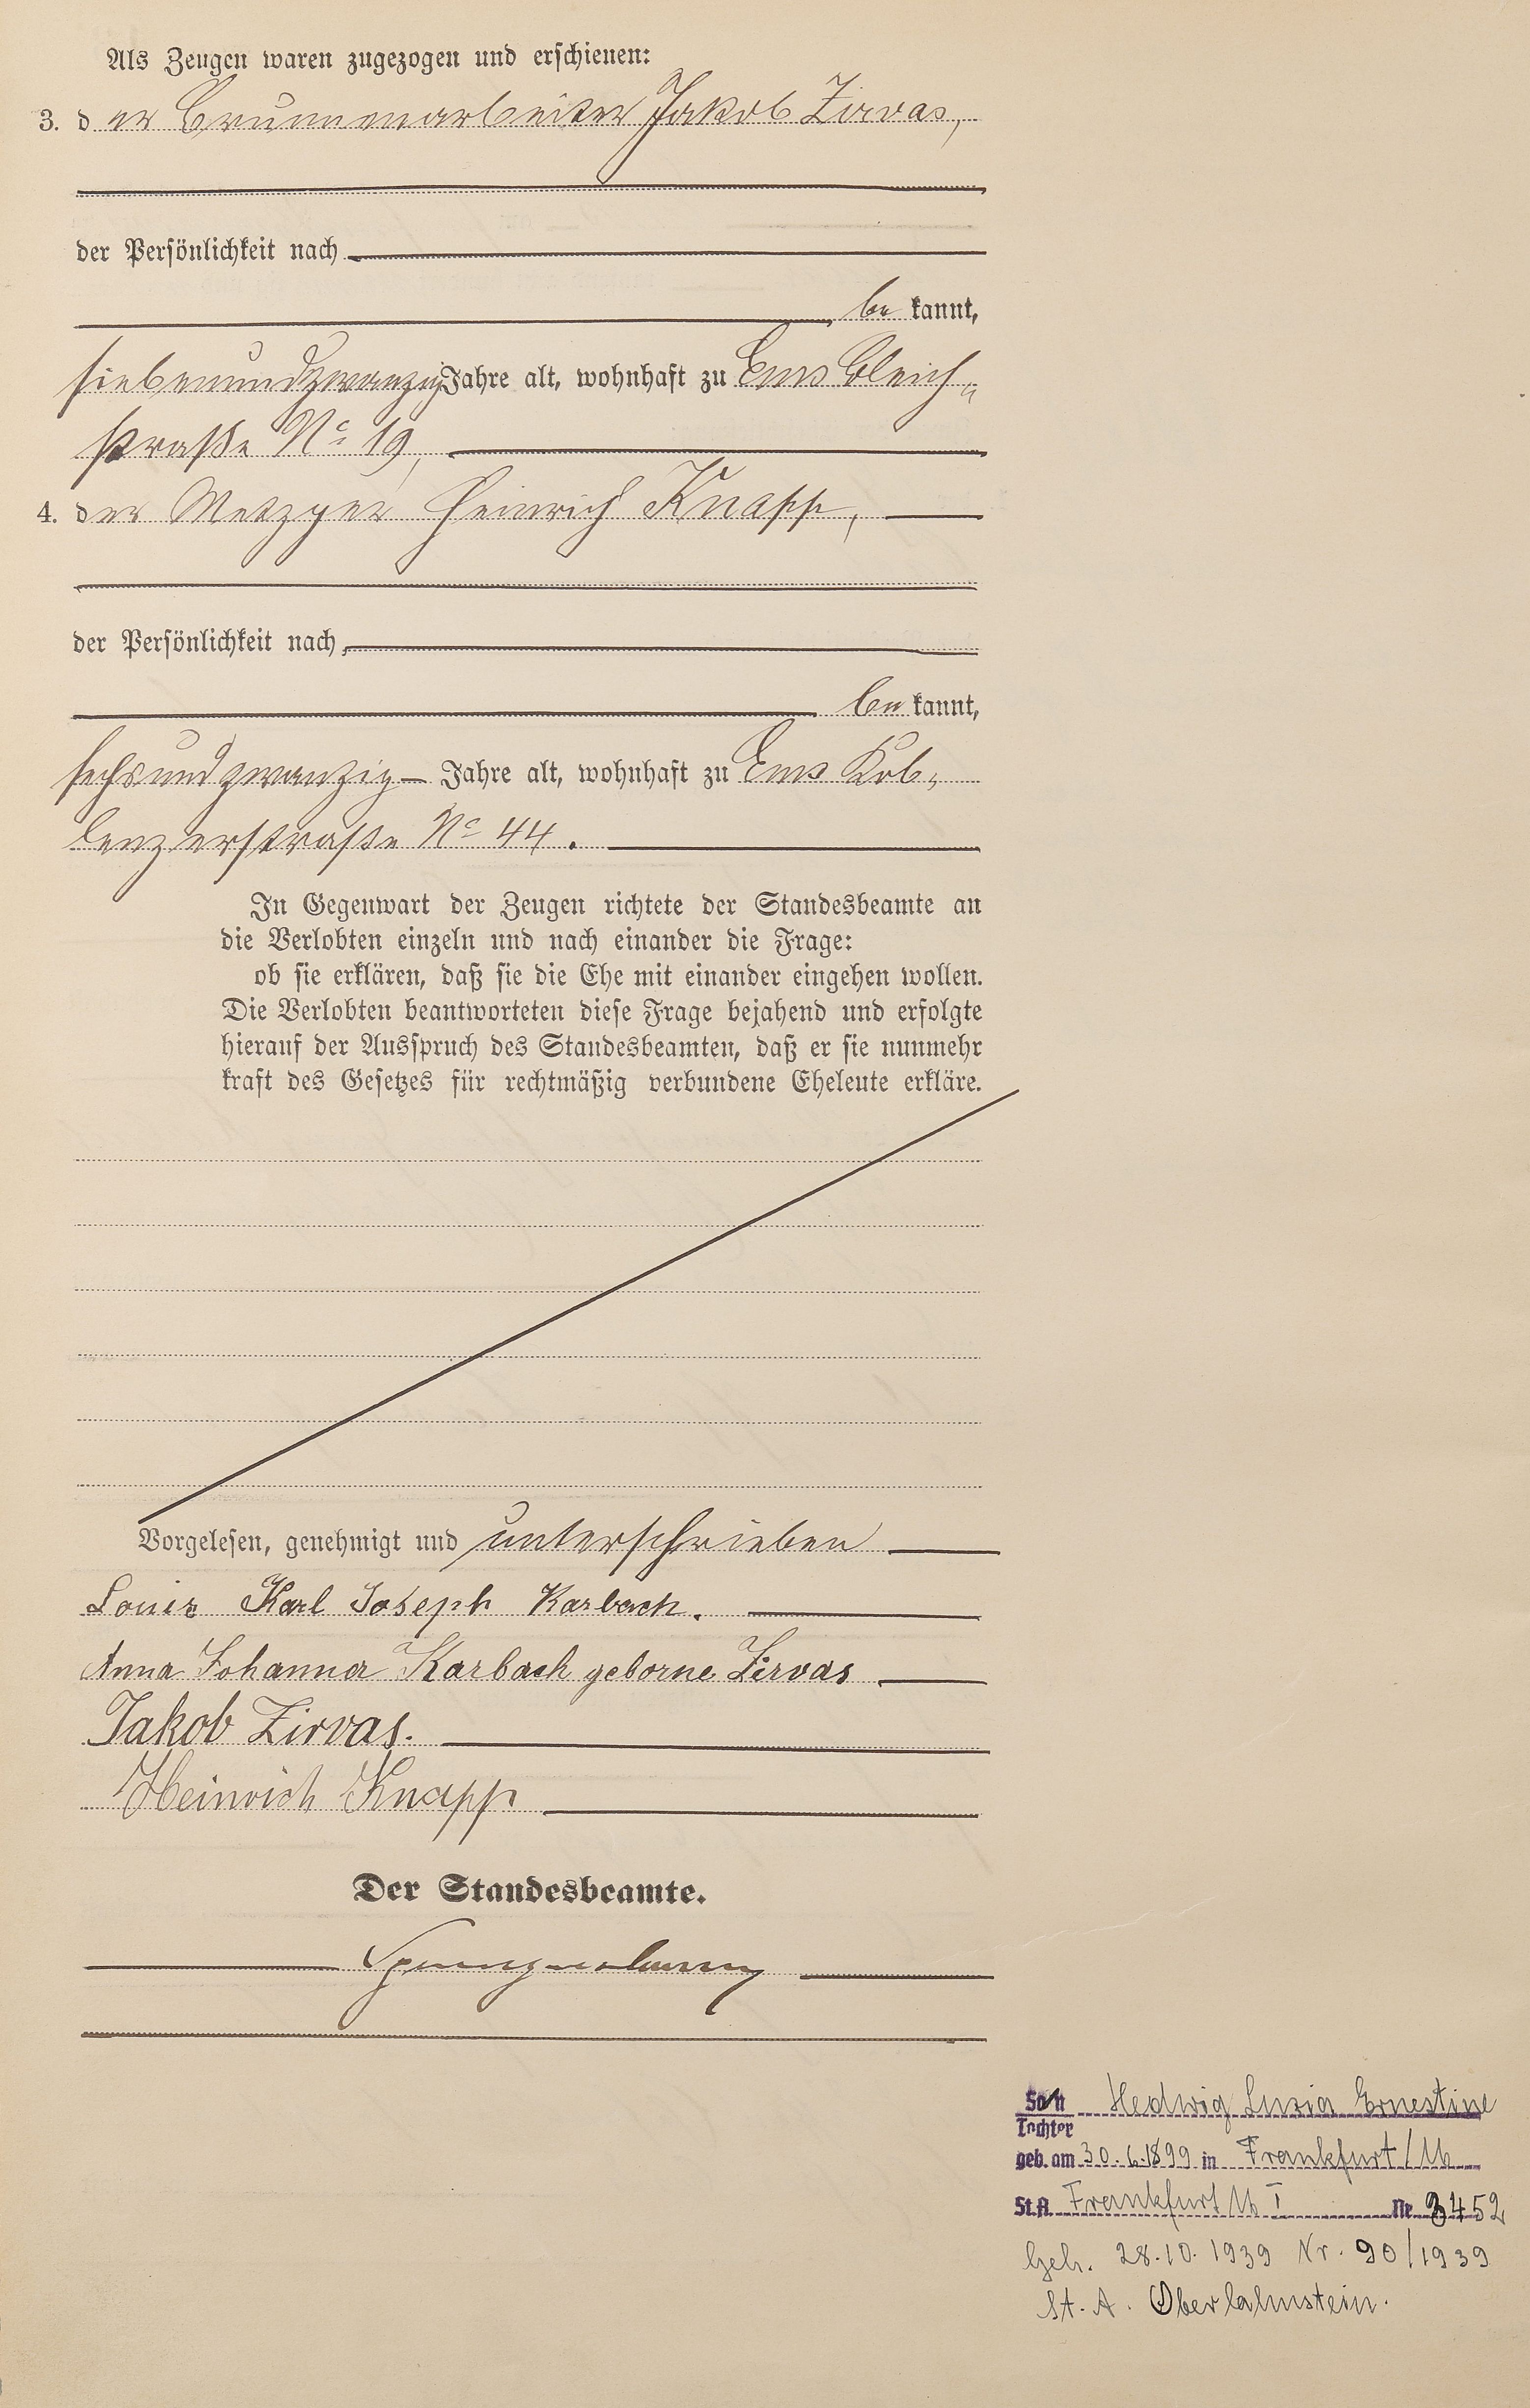 Als Zeugen waren zugezogen und erschienen:
3. der Brunnenarbeiter Jakob Zirvas,
der Persönlichkeit nach
be kannt,
siebenundzwanzig Jahre alt, wohnhaft zu Ems Bleich-
straße No 19,
4. der Metzger Heinrich Knapp,
der Persönlichkeit nach
be kannt,
sechsundzwanzig Jahre alt, wohnhaft zu Ems Kob-
lenzerstraße No 44.
In Gegenwart der Zeugen richtete der Standesbeamte an
die Verlobten einzeln und nach einander die Frage:
ob sie erklären, daß sie die Ehe mit einander eingehen wollen.
Die Verlobten beantworteten diese Frage bejahend und erfolgte
hierauf der Ausspruch des Standesbeamten, daß er sie nunmehr
kraft des Gesetzes für rechtmäßig verbundene Eheleute erkläre.
Vorgelesen, genehmigt und unterschrieben
Louis Karl Joseph Karbach.
Anna Johanna Karbach geborne Zirvas
Jakob Zirvas.
Heinrich Knapp
Der Standesbeamte.
Sohn Hedwig Luzia Ernestine
Tochter
geb. am 30.6.1899 in Frankfurt/M
St.A. Frankfurt M I Nr. 3452
Geh. 28.10.1939 Nr. 90/1939
St. A. Oberlahnstein.